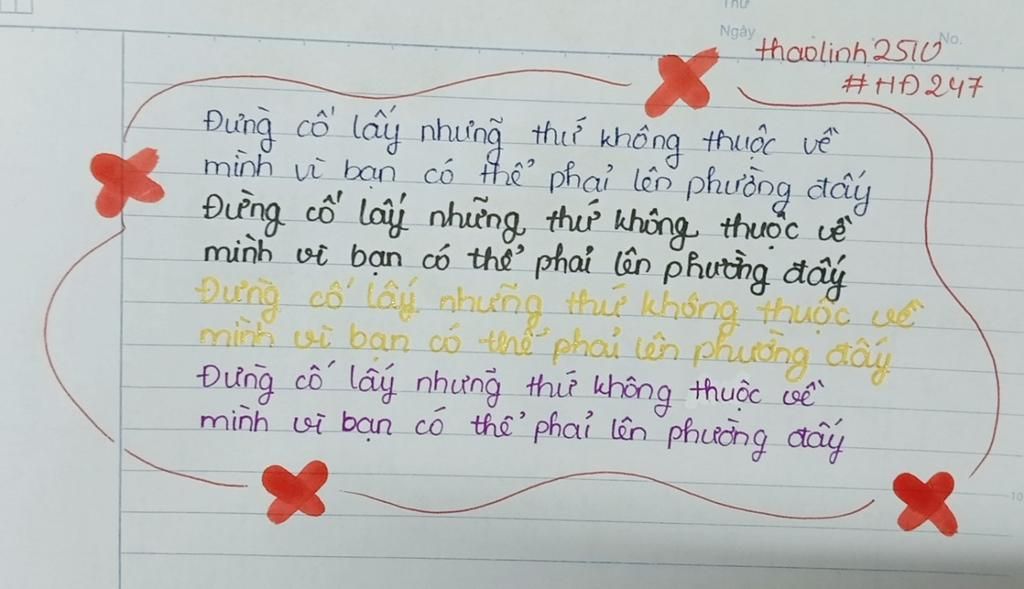 Thứ
Ngày
No.
thaolinh2510
#HĐ247
Đừng cố lấy những thứ không thuộc về
mình vì bạn có thể phải lên phường đấy
Đừng cố lấy những thứ không thuộc về
mình vì bạn có thể phải lên phường đấy
Đừng cố lấy những thứ không thuộc về
mình vì bạn có thể phải lên phường đấy
Đừng cố lấy những thứ không thuộc về
mình vì bạn có thể phải lên phường đấy
10